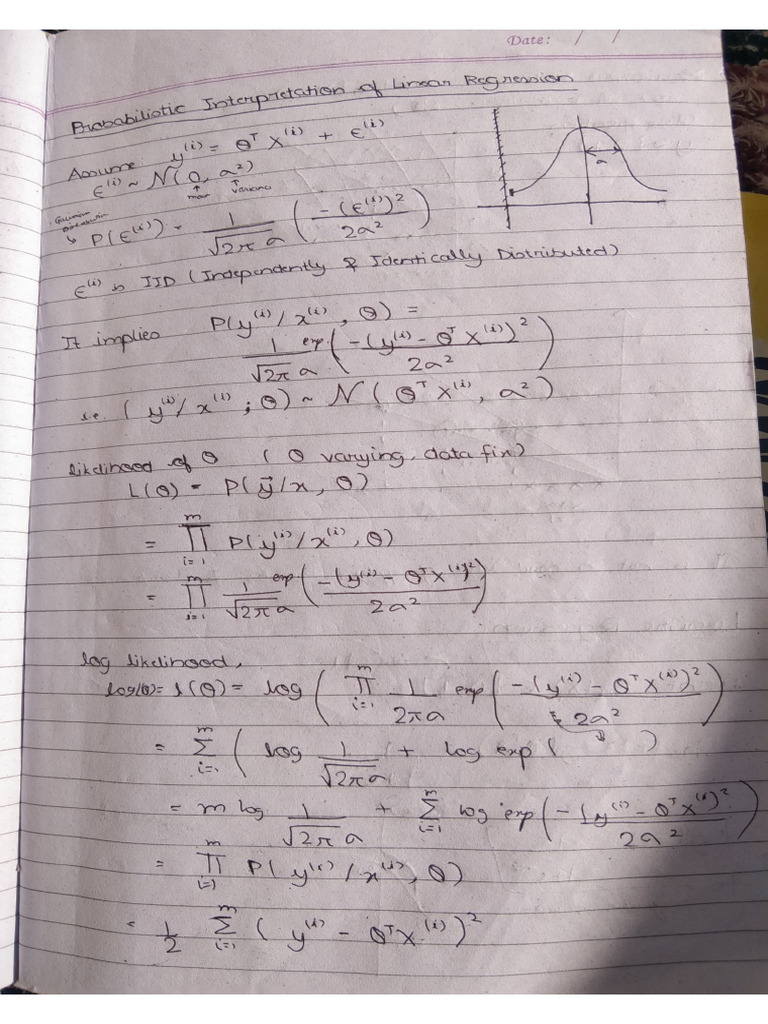 Date: / /
Probabilistic Interpretation of Linear Regression
Assume y⁽ⁱ⁾ = θᵀ x⁽ⁱ⁾ + ϵ⁽ⁱ⁾
ϵ⁽ⁱ⁾ ~ N(0, a²)
↑ ↑ variance
a
Gaussian
↳ P(ϵ⁽ⁱ⁾) = 1/(√2π a) (-(ϵ⁽ⁱ⁾)²/2a²)
ϵ⁽ⁱ⁾ is IID (Independently & Identically Distributed)
It implies P(y⁽ⁱ⁾/x⁽ⁱ⁾, θ) =
1/(√2π a) exp (-(y⁽ⁱ⁾ - θᵀ x⁽ⁱ⁾)²/2a²)
i.e. (y⁽ⁱ⁾/x⁽ⁱ⁾; θ) ~ N(θᵀ x⁽ⁱ⁾, a²)
likelihood of θ (θ varying, data fix)
L(θ) = P(y⃗/x, θ)
= ∏ᵢ₌₁ᵐ P(y⁽ⁱ⁾/x⁽ⁱ⁾, θ)
= ∏ᵢ₌₁ᵐ 1/(√2π a) exp (-(y⁽ⁱ⁾ - θᵀ x⁽ⁱ⁾)²/2a²)
log likelihood,
log(θ) = l(θ) = log ( ∏ᵢ₌₁ᵐ 1/(2πa) exp (-(y⁽ⁱ⁾ - θᵀ x⁽ⁱ⁾)²/2a²)
= ∑ᵢ₌₁ᵐ ( log 1/(√2π a) + log exp ( )
= m log 1/(√2π a) + ∑ᵢ₌₁ᵐ log exp (-(y⁽ⁱ⁾ - θᵀ x⁽ⁱ⁾)²/2a²)
= ∏ᵢ₌₁ᵐ P(y⁽ⁱ⁾/x⁽ⁱ⁾, θ)
= 1/2 ∑ᵢ₌₁ᵐ (y⁽ⁱ⁾ - θᵀ x⁽ⁱ⁾)²